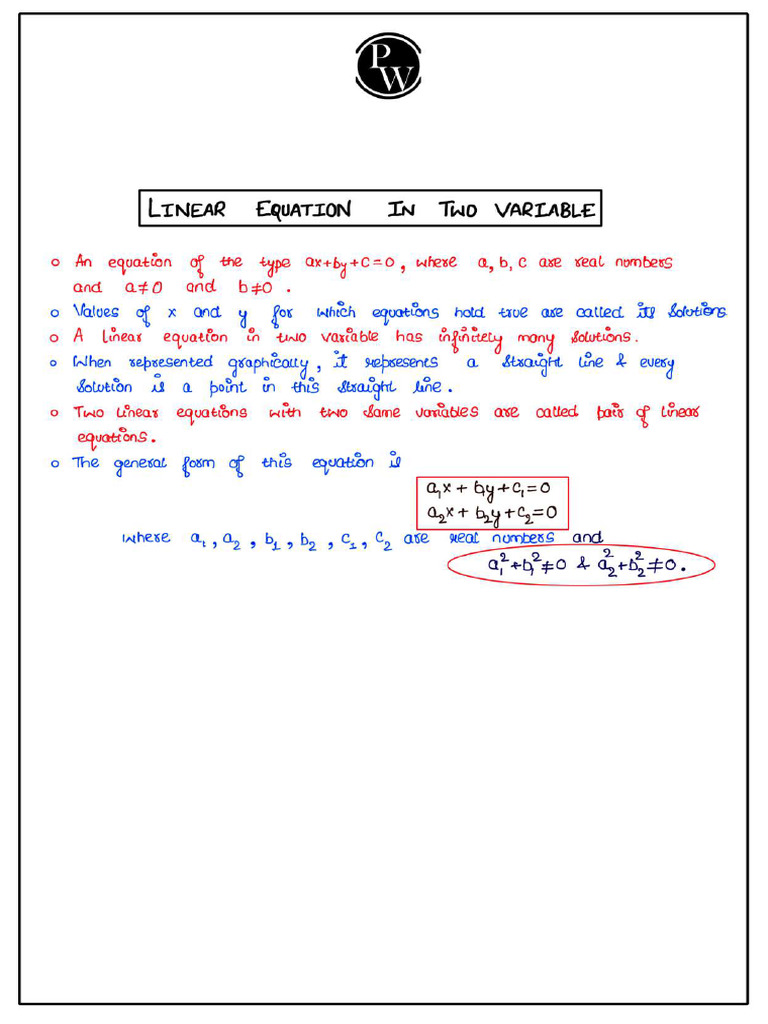 PW
LINEAR EQUATION IN TWO VARIABLE
o An equation of the type ax+by+c=0, where a, b, c are real numbers
and a≠0 and b≠0.
o Values of x and y for which equations hold true are called its solutions
o A linear equation in two variable has infinitely many solutions.
o When represented graphically, it represents a straight line & every
solution is a point in this straight line.
o Two linear equations with two same variables are called pair of linear
equations.
o The general form of this equation is
a₁x + b₁y + c₁ = 0
a₂x + b₂y + c₂ = 0
where a₁, a₂, b₁, b₂, c₁, c₂ are real numbers and
a₁²+b₁²≠0 & a₂²+b₂²≠0.